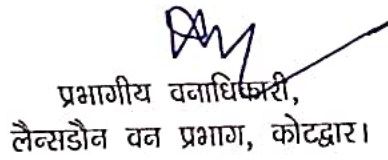 प्रभागीय वनाधिकारी,
लैन्सडौन वन प्रभाग, कोटद्वार।